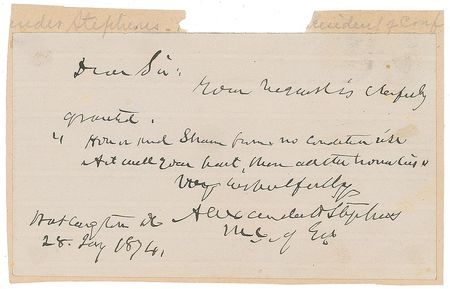 ander Stephens.
resident of Conf
Dear Sir:
Your request is cheerfully
granted.
"Honor and Shame from no condition rise
Act well your part, there all the honor lies"
Very respectfully
Alexander H Stephens
Washington DC
28. Jany 1874.